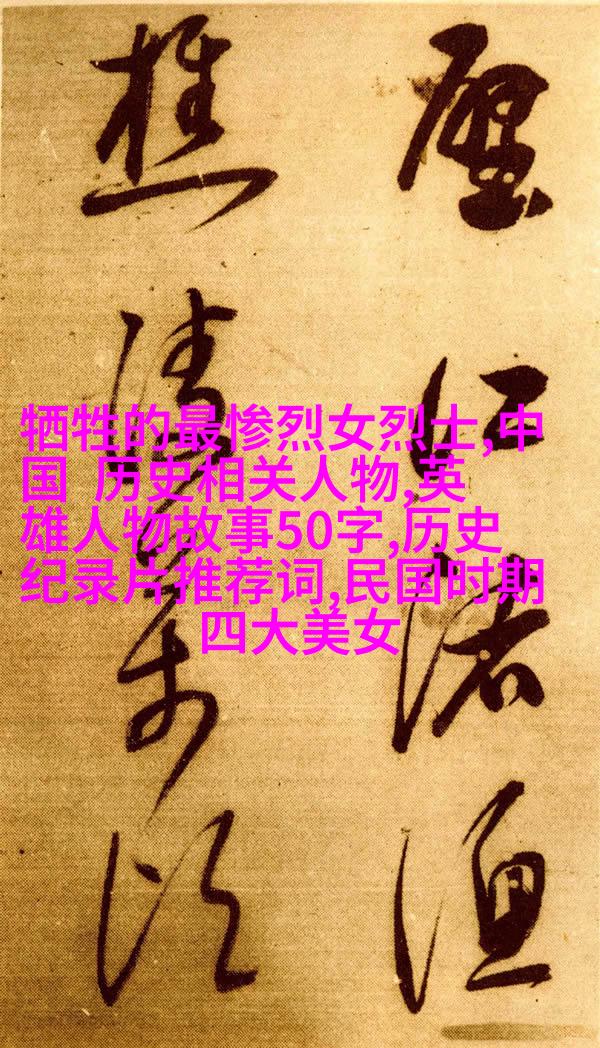 牺牲的最惨烈女烈士,中
国  历史相关人物,英
雄人物故事50字,历史
纪录片推荐词,民国时期
四大美女
江渚漁
樵